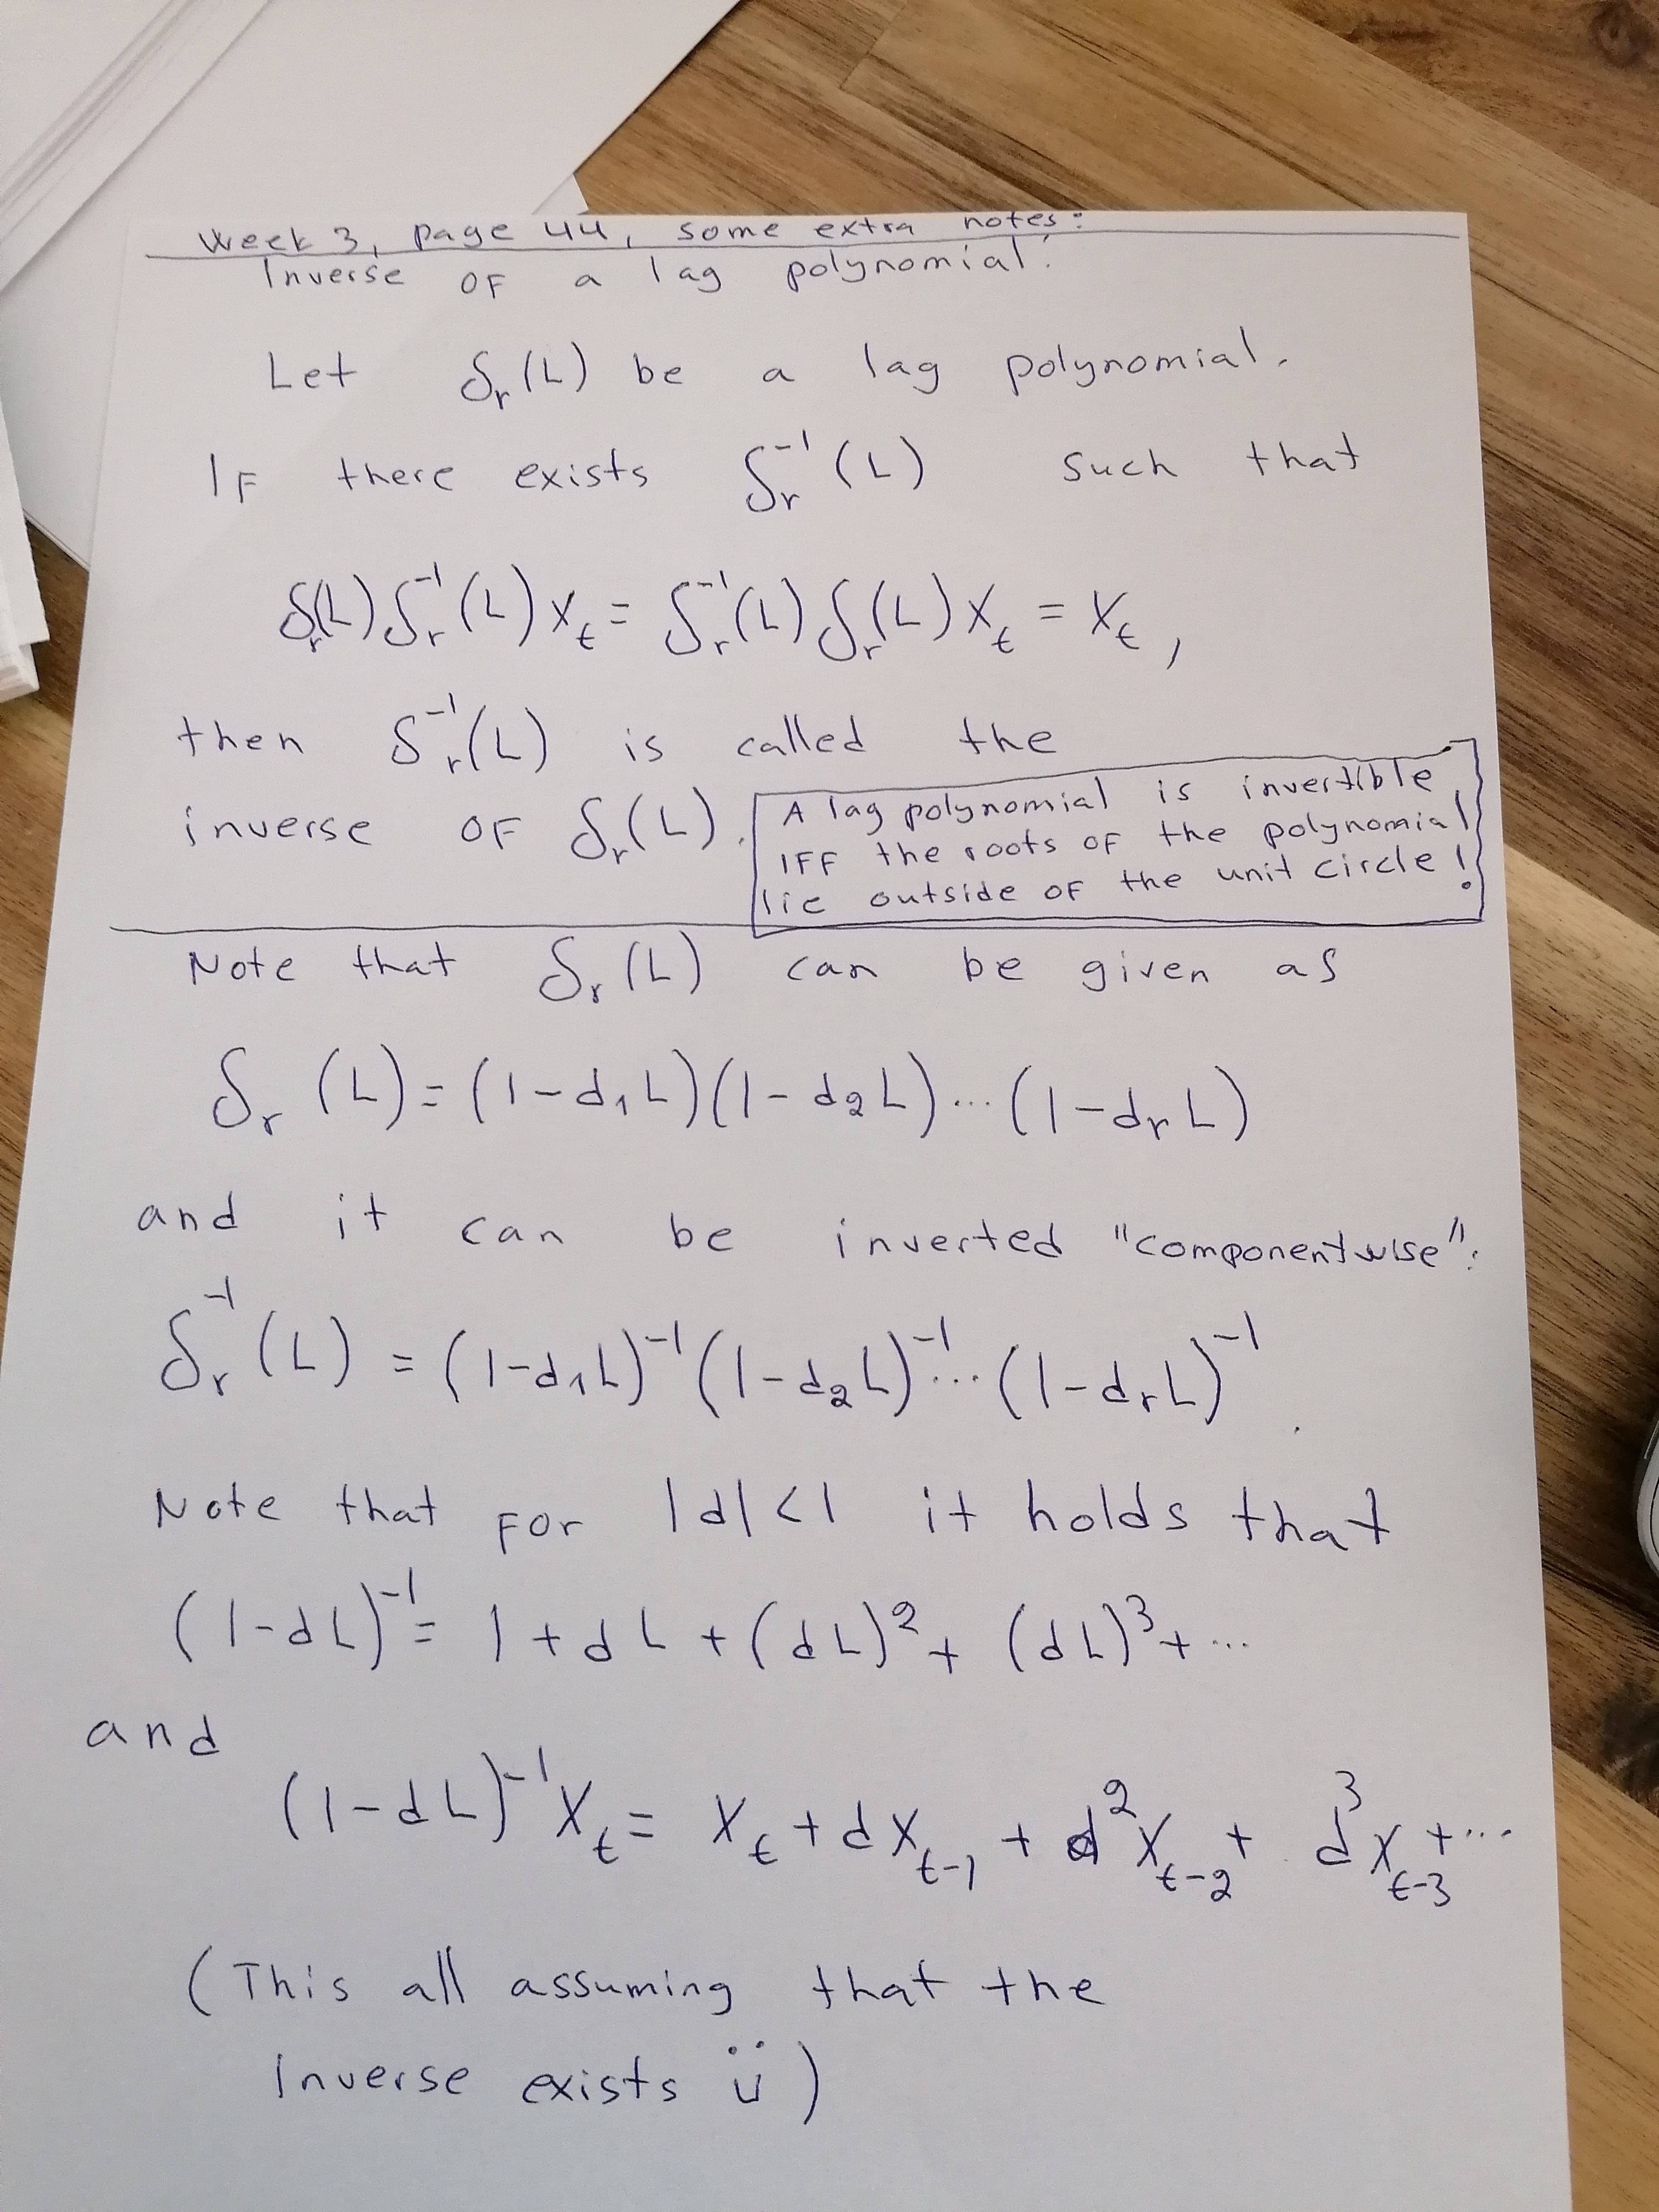 Week 3, page 44, some extra notes:
Inverse OF a lag polynomial:
Let δᵣ(L) be a lag polynomial.
IF there exists δᵣ⁻¹(L) such that
δᵣ(L)δᵣ⁻¹(L)Xₜ = δᵣ⁻¹(L)δᵣ(L)Xₜ = Xₜ,
then δᵣ⁻¹(L) is called the
inverse OF δᵣ(L).
A lag polynomial is invertible
IFF the roots OF the polynomial
lie outside OF the unit circle!
Note that δᵣ(L) can be given as
δᵣ(L) = (1-d₁L)(1-d₂L)...(1-dᵣL)
and it can be inverted "componentwise":
δᵣ⁻¹(L) = (1-d₁L)⁻¹(1-d₂L)⁻¹...(1-dᵣL)⁻¹.
Note that FOR |d|<1 it holds that
(1-dL)⁻¹ = 1 + dL + (dL)² + (dL)³ + ...
and
(1-dL)⁻¹Xₜ = Xₜ + dXₜ₋₁ + d²Xₜ₋₂ + d³Xₜ₋₃ + ...
(This all assuming that the
Inverse exists ü)